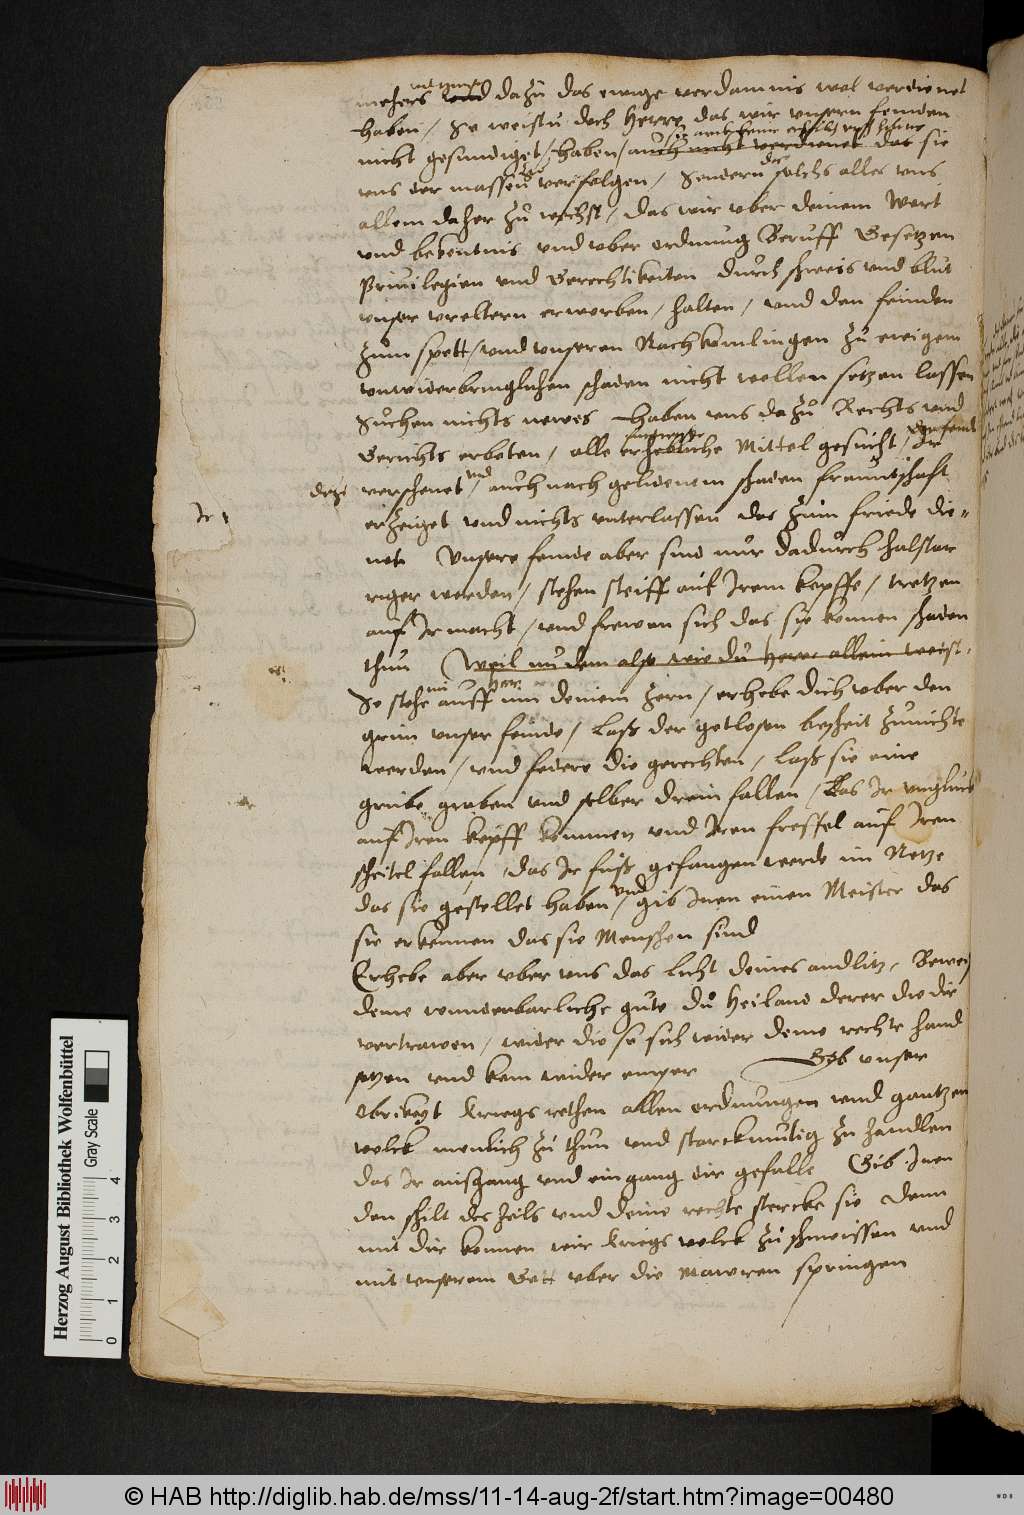 mehers vnd dazu das ewige verdamnis wol verdienet
haben / So weistu doch Herre das wir vnsern feinden
nicht gesundiget / haben / auch nicht verdienet das sie
vns der massen verfolgen / Sondern solchs alles vns
allein daher zu wechst / das wir vber deinem Wort
vnd bekentnis vnd vber ordnung Beruff Gesetzen
Priuilegien vnd Gerechtikeiten durch schweis vnd blut
vnser vreltern erworben / halten / vnd den feinden
zum spott / vnd vnseren Nachkomlingen zu ewigem
vnwiderbringlichen schaden nicht wollen setzen lassen
Suchen nichts newes Haben vns dazu Rechts vnd
Gerichts erboten / alle erhebliche Mittel gesucht /
verschonet vnd auch nach gelidenem schaden freuntschaft
erzeiget vnd nichts vnterlassen das zum friede die=
net Vnsere feinde aber sind nur dadurch halstar
riger worden / stehen steiff auf Irem kopffe / trotzen
auf Ir macht / vnd frewen sich das sie konnen schaden
thun Weil nu dem also wie du Herr allein weist
So stehe nu auff Herr inn deinem Zorn / erhebe dich vber den
grim vnser feinde / Laß der gotlosen bosheit zunichte
werden / vnd fodere die gerechten / laß sie eine
grube graben vnd selber drein fallen / Das Ir vngluck
auf Iren kopff kommen vnd Iren freffel auf Iren
scheitel fallen / das Ir fuß gefangen werde im Netze
das sie gestellet haben / vnd gib Inen einen Meister das
sie erkennen das sie Menschen sind
Erhebe aber vber vns das licht deines andlitz / Beweis
deine wunderbarliche gute du Heiland derer die dir
vertrawen / wider die so sich wider deine rechte hand
setzen vnd kom wider empor Gib vnser
Obrikeyt kriegs rethen allen ordnungen vnd gantzen
volck menlich zu thun vnd starckmutig zu handlen
das Ir ausgang vnd eingang dir gefalle Gib Inen
den schilt des heils vnd deine rechte stercke sie Denn
mit dir konnen wir kriegs volck zu schmeissen vnd
mit vnserem Gott vber die Mawren springen
Herzog August Bibliothek Wolfenbüttel
Gray Scale
0 1 2 3 4
© HAB http://diglib.hab.de/mss/11-14-aug-2f/start.htm?image=00480